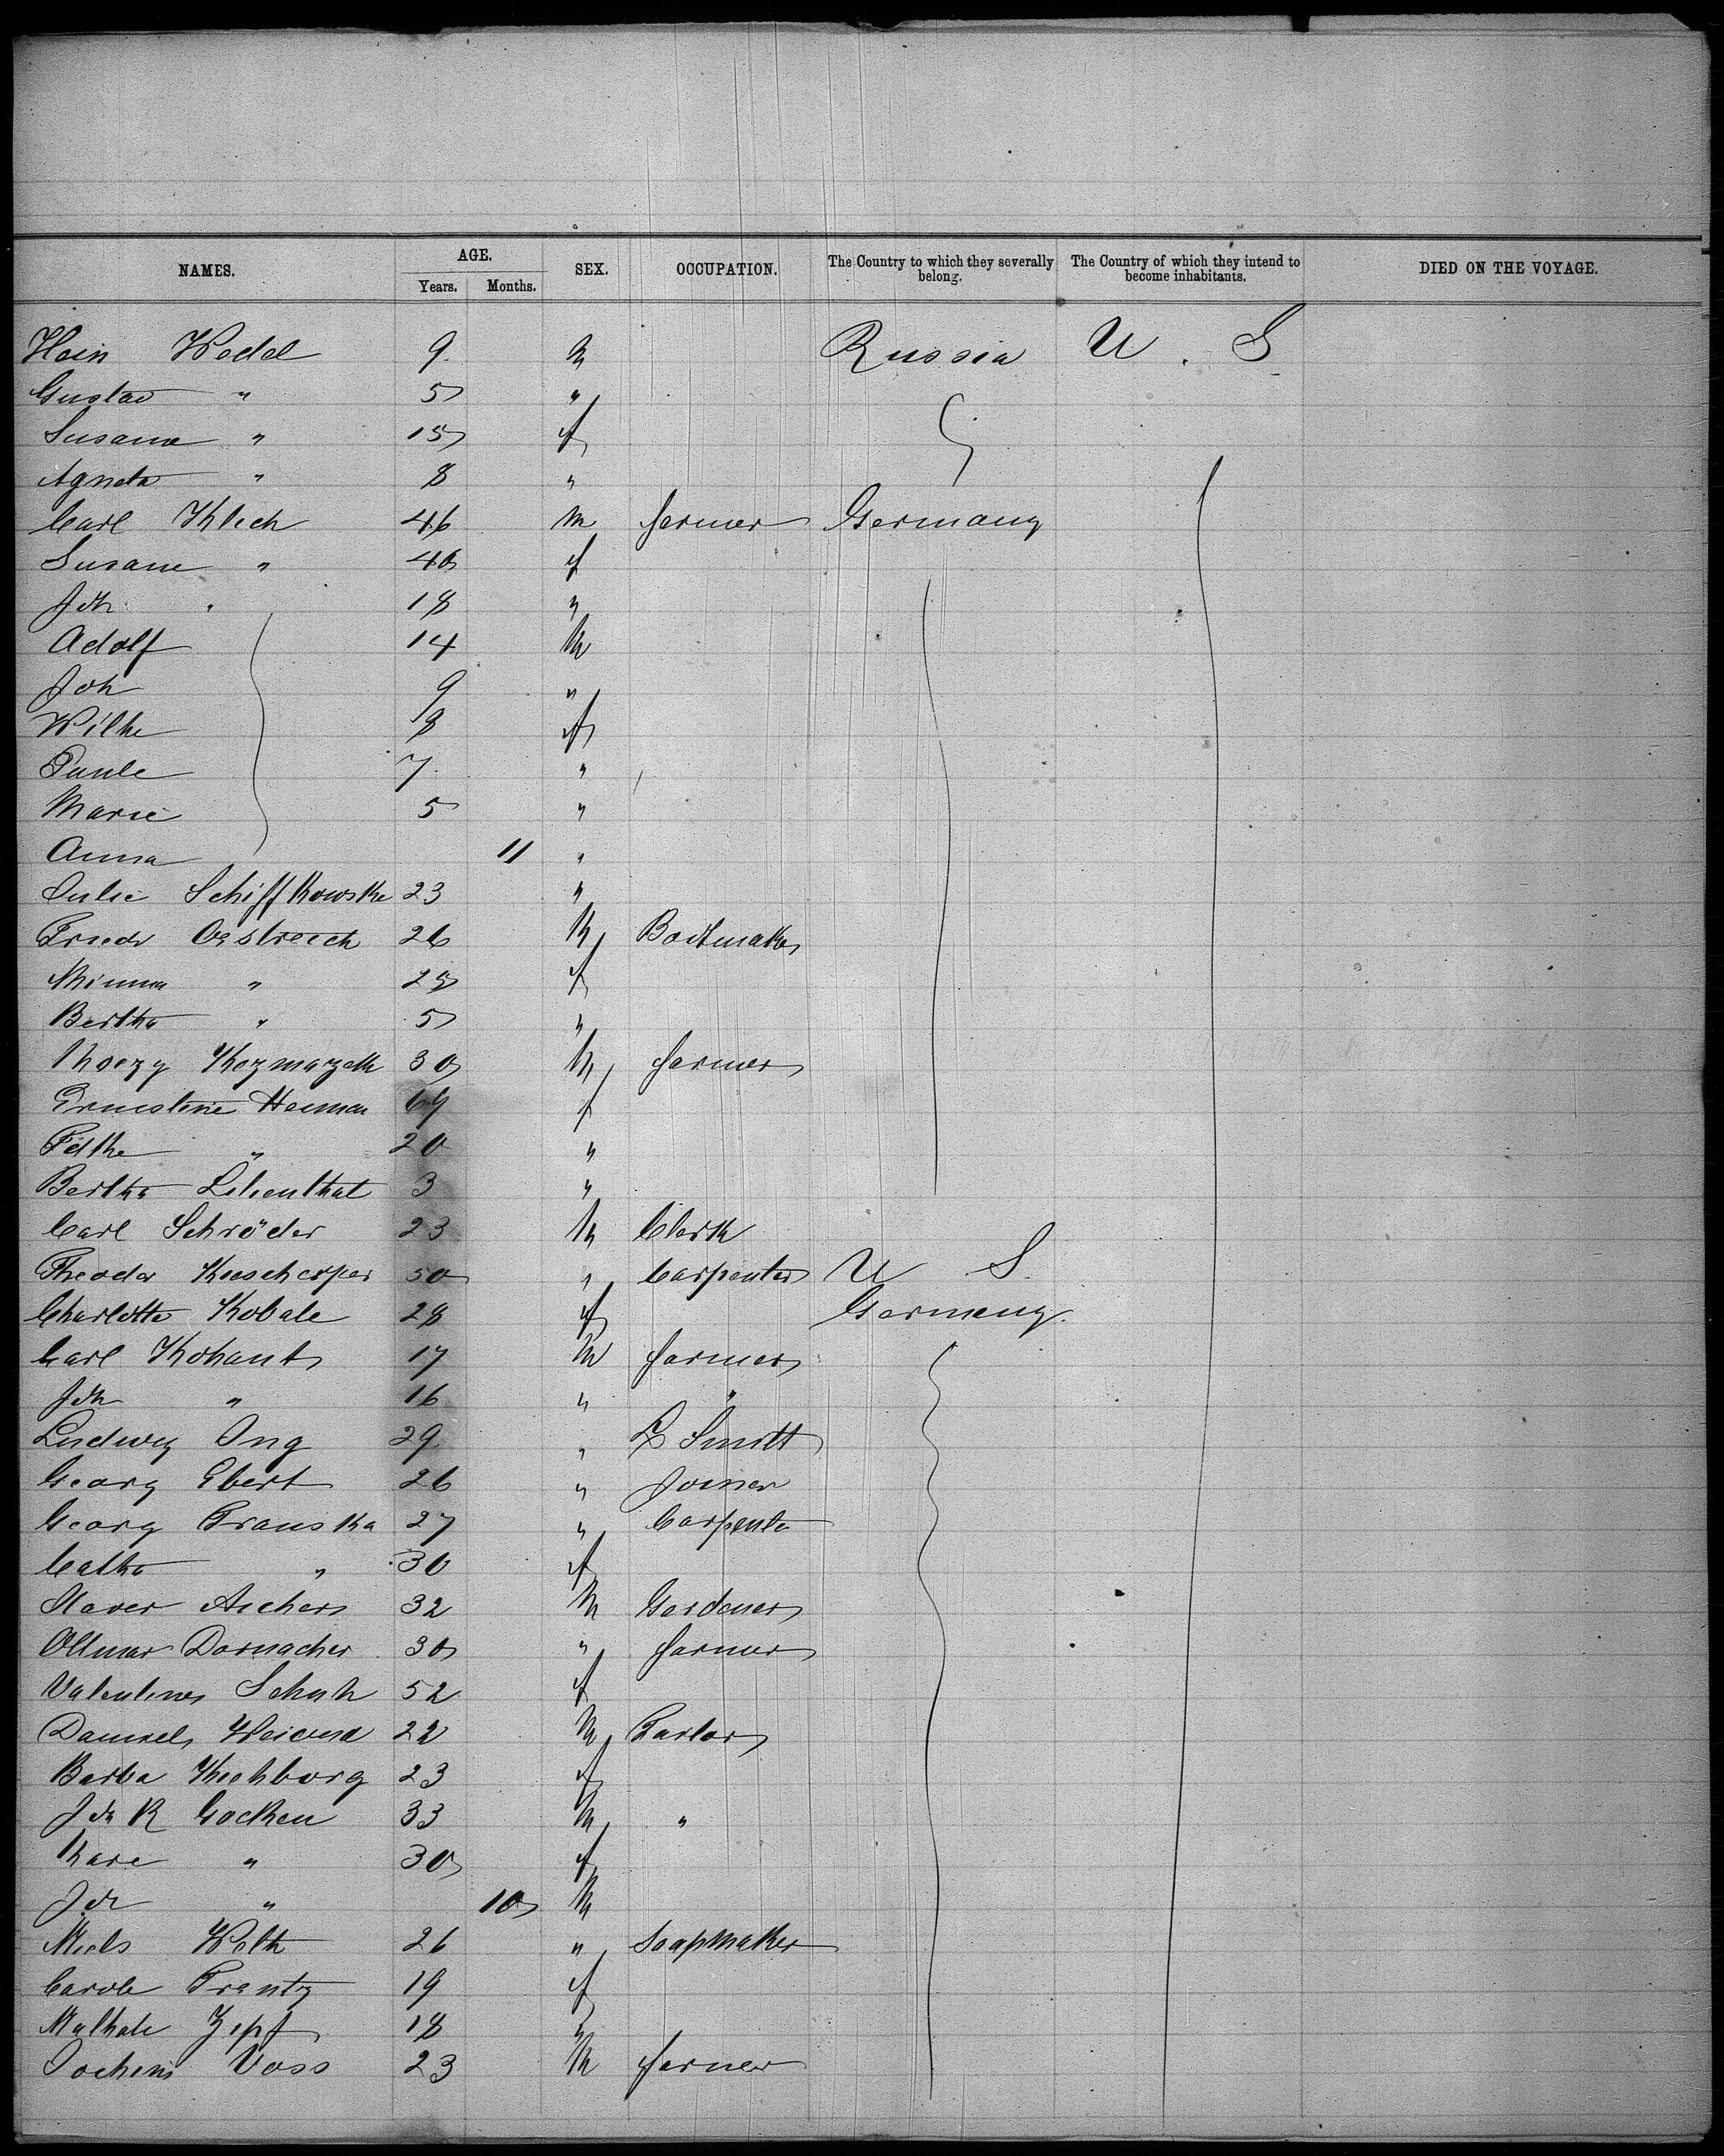 NAMES. AGE. SEX. OCCUPATION. The Country to which they severally belong. The Country of which they intend to become inhabitants. DIED ON THE VOYAGE.
Years. Months.
Hein Wedel 9 M Russia U. S
Gustav " 5 "
Susanna " 15 f
Agneta " 8 "
Carl Klich 46 M farmer Germany
Susane " 40 f
Joh " 18 "
Adolf 14 M
Joh 9 "
Wilhe 8 f
Paule 7 "
Marie 5 "
Anna 11 "
Julie Schiffkowske 23 "
Friedr Oestreich 26 M Bootmaker
Minna " 25 f
Bertha " 5 "
30 M farmer
Ernestine Heiman 64 f
" 20 "
Bertha Lilienthal 3 "
Carl Schröder 23 M Clerk
Theodor 50 " Carpenter U S.
Charlotte Kobale 28 f Germany.
Carl Kohant 17 M farmer
Joh " 16 " "
Ludwig Ong 29 " Smith
Georg Ebert 26 " Joiner
Georg Franska 27 " Carpenter
Catha " 30 f
Xaver Aicher 32 M Gardener
Ottmar Dornacher 30 " farmer
Valentine Schuh 52 f
22 M Tailor
Barba Kichborg 23 f
Joh R Gocken 33 M "
Mare " 30 f
Joh " 10 M
Niels Welth 26 " Soapmaker
Carole Frentz 19 f
Mathale Zipf 18 "
Jochim Voss 23 M farmer